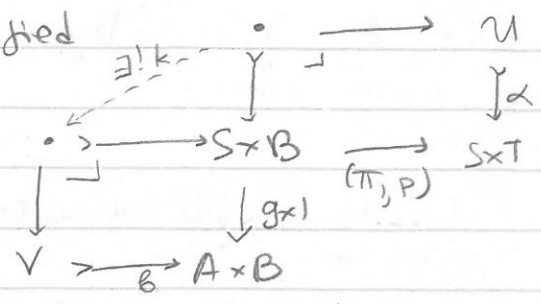 fied · U
∃! k
α
· S×B (π, p) S×T
g×1
V b A×B